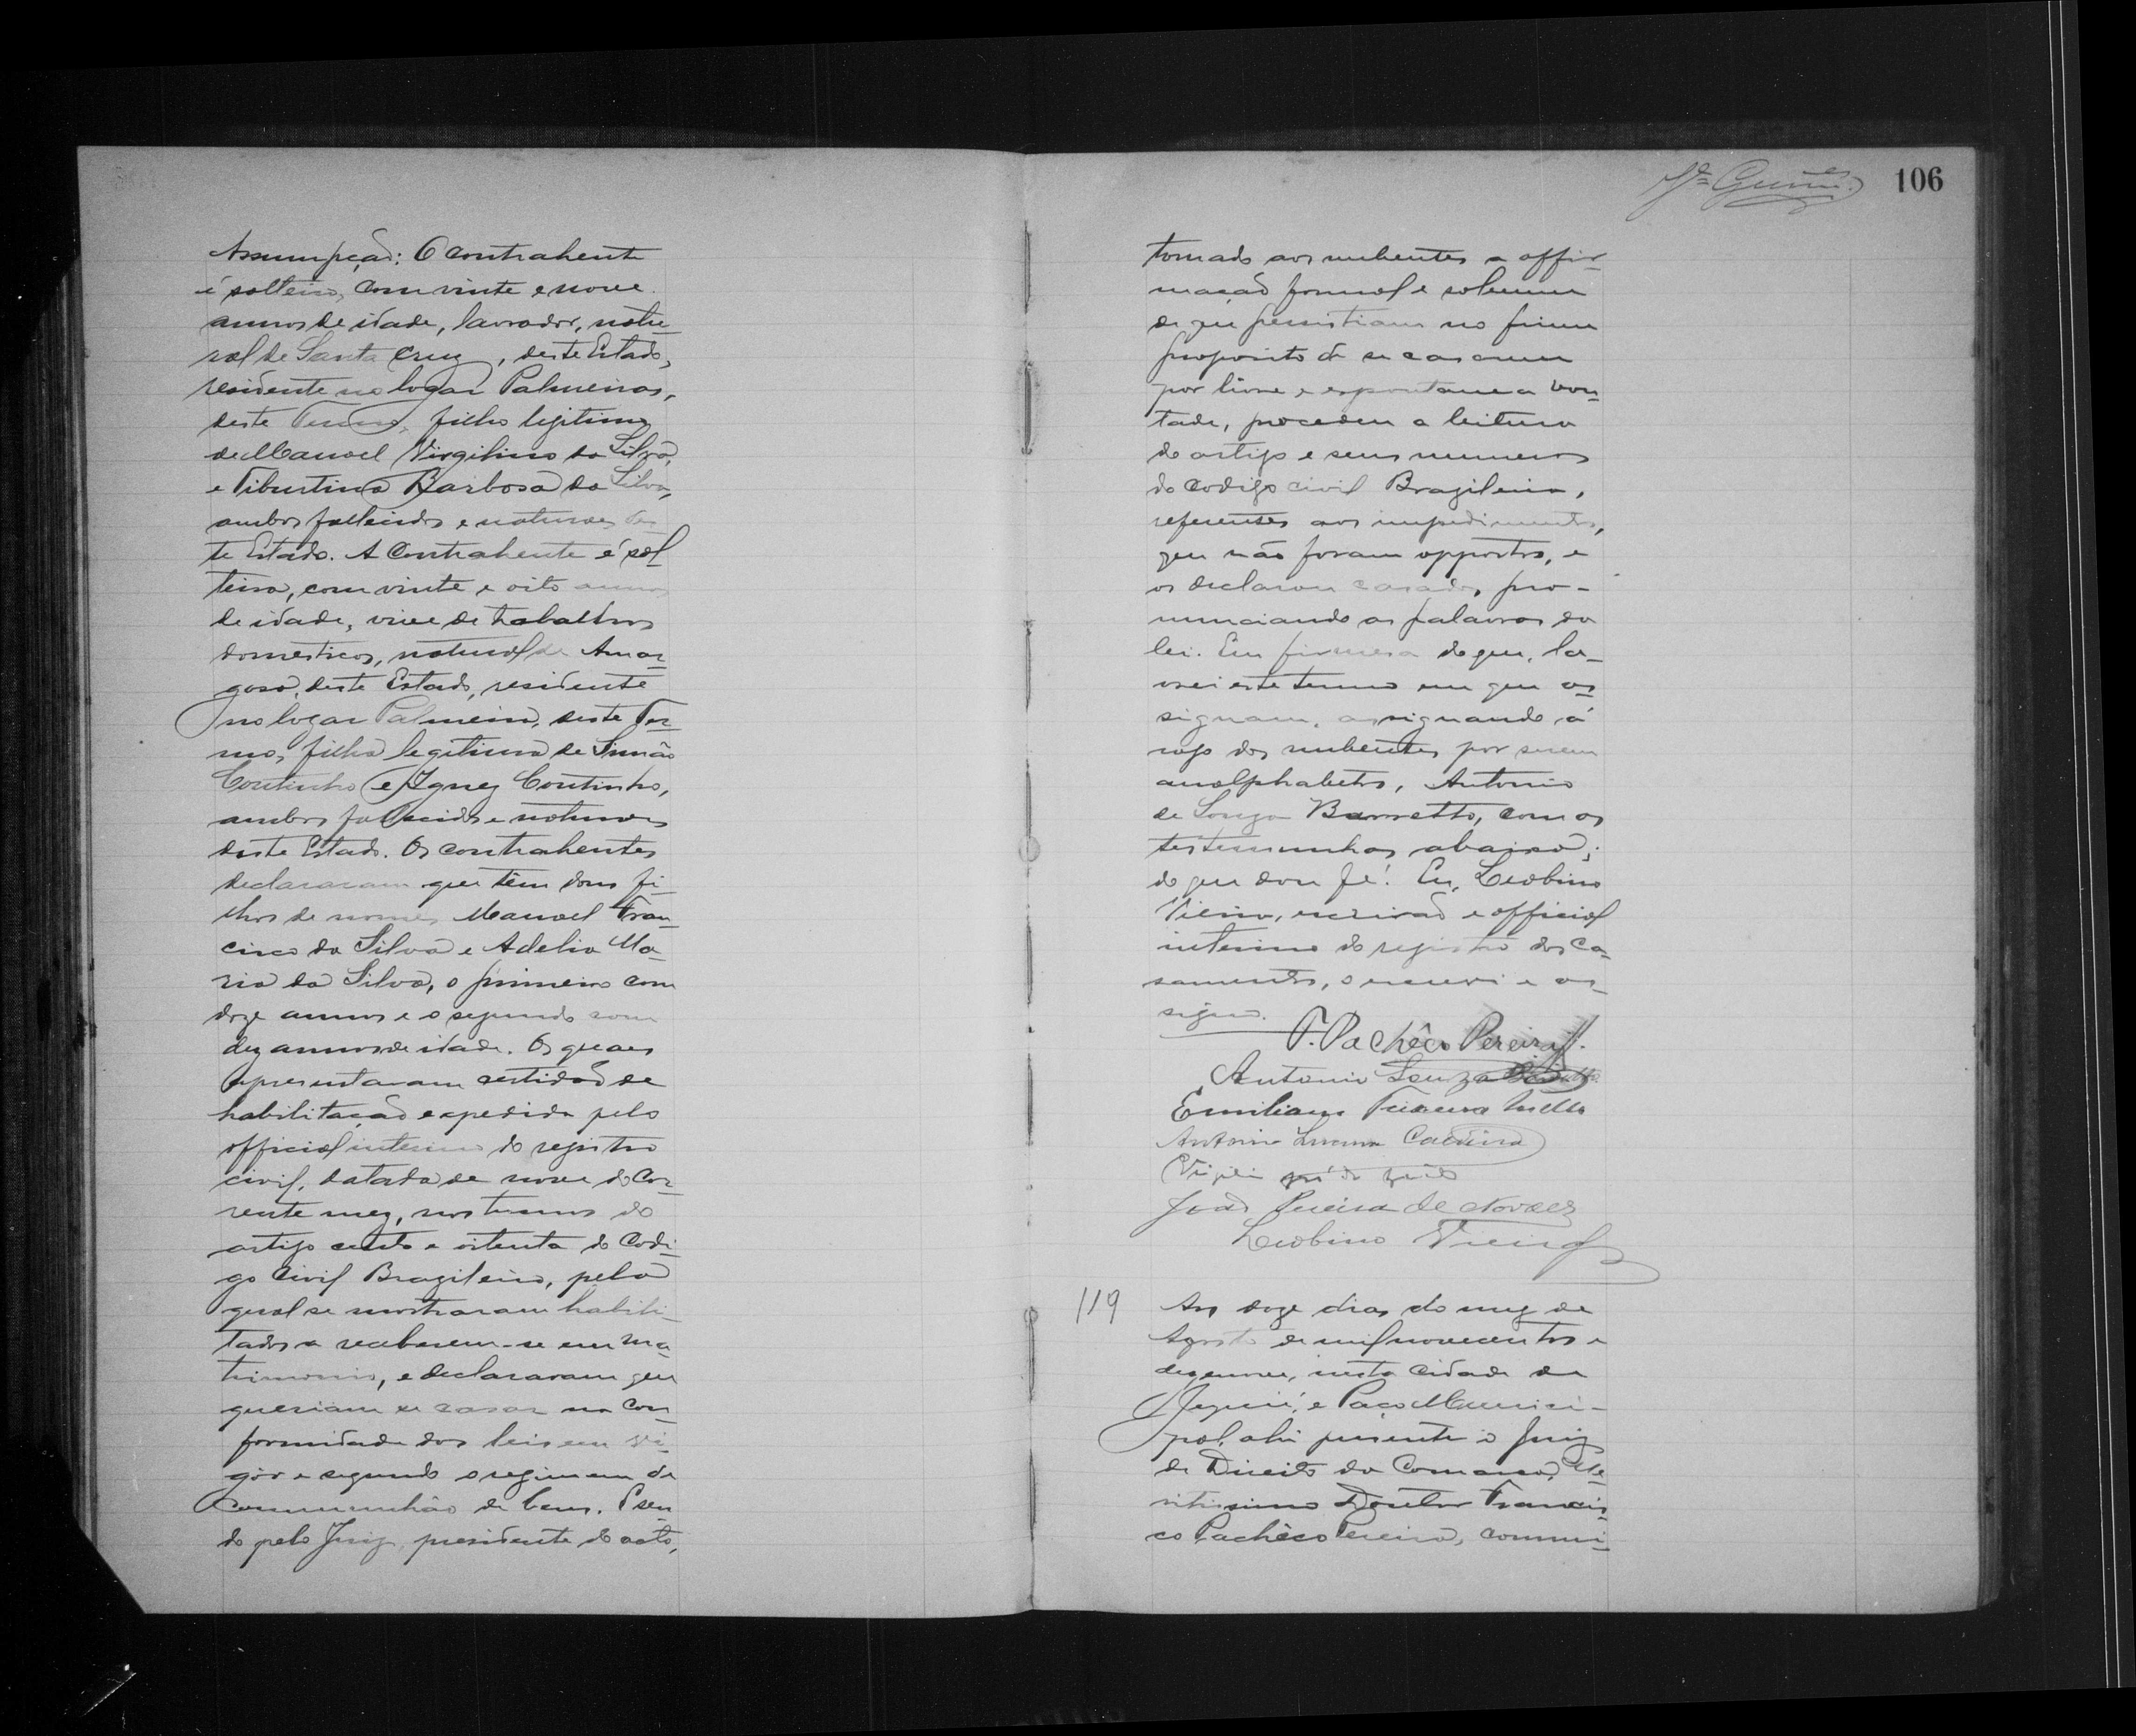 Assumpção: O contrahente
é solteiro, com vinte e nove
annos de idade, lavrador, natu-
ral de Santa Cruz, deste Estado,
residente no logar Palmeiras,
deste Termo, filho legitimo
de Manoel Virgilino da Silva,
e Tiburtina Barbosa da Silva,
ambos fallecidos e naturaes des
te Estado. A Contrahente é sol
teira, com vinte e oito annos
de idade, vive de trabalhos
domesticos, natural de Amar
gosa, deste Estado, residente
no logar Palmeira, deste Ter-
mo, filha legitima de Simão
Coutinho e Ignez Coutinho,
ambos fallecidos e naturaes
deste Estado. Os contrahentes
declararam que têm dous fi-
lhos de nomes Manoel Fran
cisco da Silva e Adelia Ma-
ria da Silva, o primeiro com
doze annos e o segundo com
dez annos de idade. Os quaes
apresentaram certidão de
habilitação expedida pelo
official interino do registro
civil, datada de nove do Cor-
rente mez, nos termos do
artigo cento e oitenta do Codi-
go Civil Brazileiro, pela
qual se mostraram habili-
tados a receberem-se em ma-
trimonio, e declararam que
queriam se casar na con-
formidade das leis em vi-
gôr e segundo o regimem de
communhão de bens. E sen-
do pelo Juiz, presidente do acto,
106
tomado aos nubentes a affir-
mação formal e solemne
de que persistiam no firme
proposito de se casarem
por livre e espontanea von-
tade, procedeu a leitura
do artigo e seus numeros
do Codigo civil Brazileiro,
referentes aos impedimentos,
que não foram oppostos, e
os declarou casados, pro-
nunciando as palavras da
lei. Em firmesa do que, la-
vrei este termo em que as-
signam, assignando á
rogo dos nubentes, por serem
analphabetos, Antonio
de Souza Barretto, com as
testemunhas abaixo;
do que dou fé. Eu, Leobino
Vieira, escrivão e official
interino do registro dos ca-
samentos, o escrevi e as-
signo.
F. Pachêco Pereira
Antonio Souza Barretto
Emiliano Teixeira Mello
Antonio
João Pereira de Novaes
Leobino Vieira
119
Aos doze dias do mez de
Agosto de mil novecentos e
dezenove, nesta Cidade de
Jequié, e Paço Munici-
pal, ahi presente o Juiz
de Direito da Comarca, Me-
ritissimo Doutor Francis-
co Pachêco Pereira, commi-